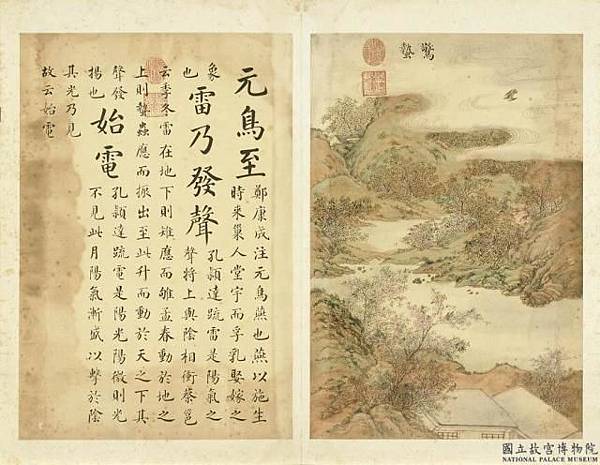 驚蟄
元鳥至
鄭康成注元鳥燕也燕以施生
時來巢人堂宇而孚乳娶嫁之
象
也
雷乃發聲
孔穎達疏雷是陽氣之
聲將上與陰相衝蔡邕
云季冬雷在地下則雉應而雊孟春動於地之
上則蟄蟲應而振出至此升而動於天之下其
聲發
揚也
始電
孔穎達疏電是陽光陽微則光
不見此月陽氣漸盛以擊於陰
其光乃見
故云始電
國立故宮博物院
NATIONAL PALACE MUSEUM